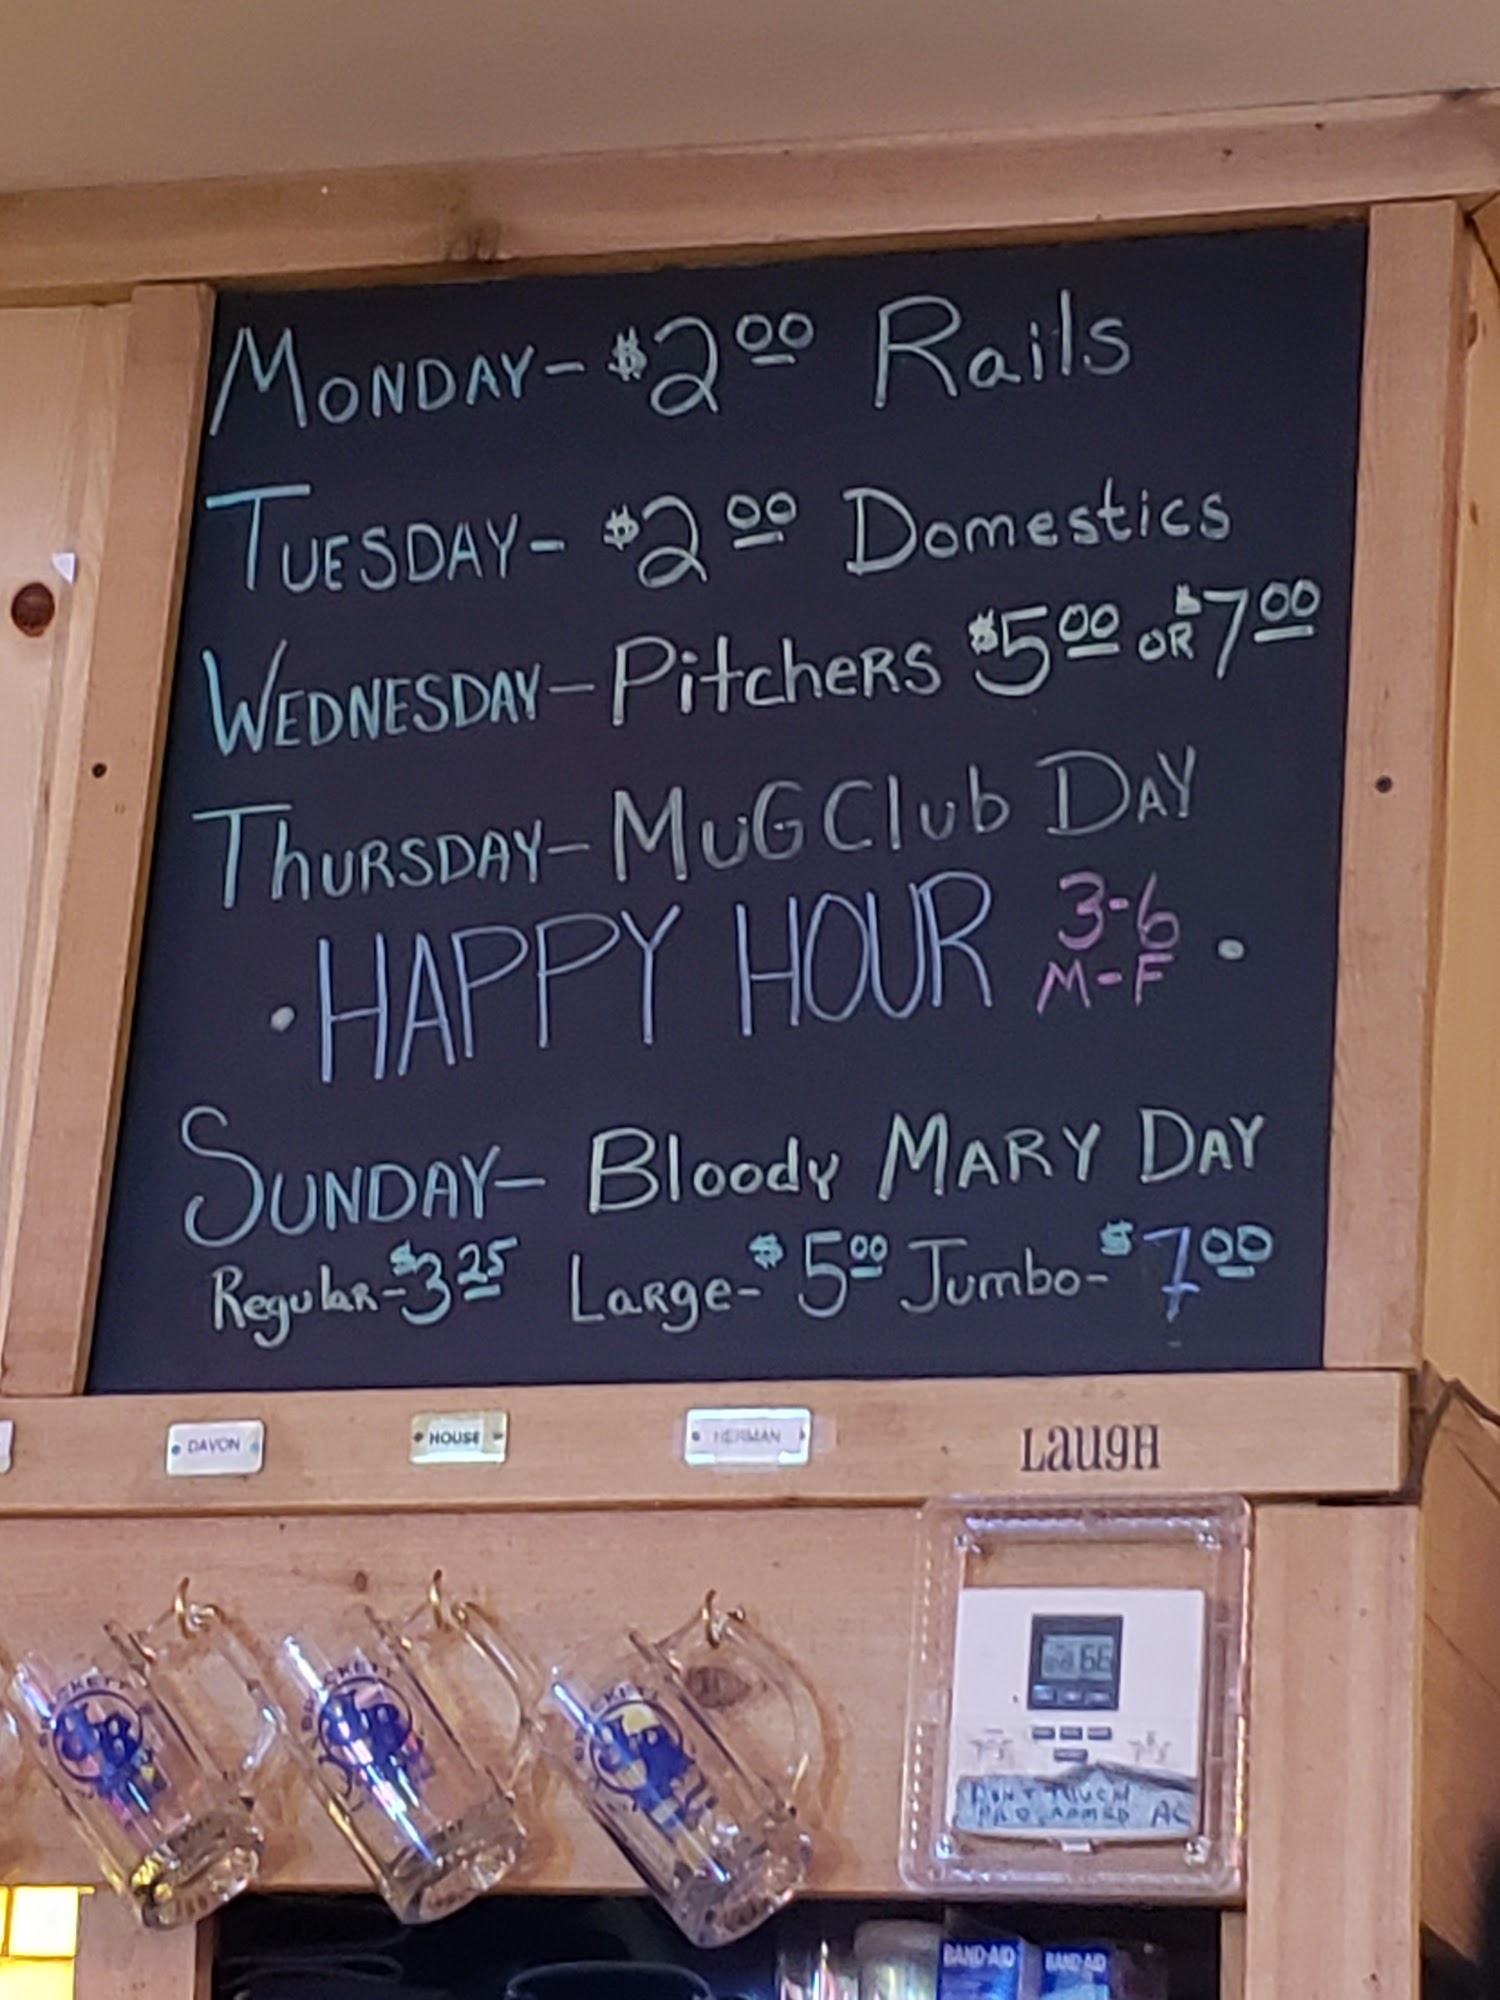 MONDAY - $2.00 Rails
TUESDAY - $2.00 Domestics
WEDNESDAY - PitcheRS $5.00 OR $7.00
ThURSDAY - MuG Club DAY
• HAPPY HOUR 3-6 •
M-F
SUNDAY - Bloody MARY DAY
RegulaR - $3.25 LaRge - $5.00 Jumbo - $7.00
DAVON
HOUSE
HERMAN
LaugH
66
DON'T TOUCH
AC
BAND-AID
BAND-AID